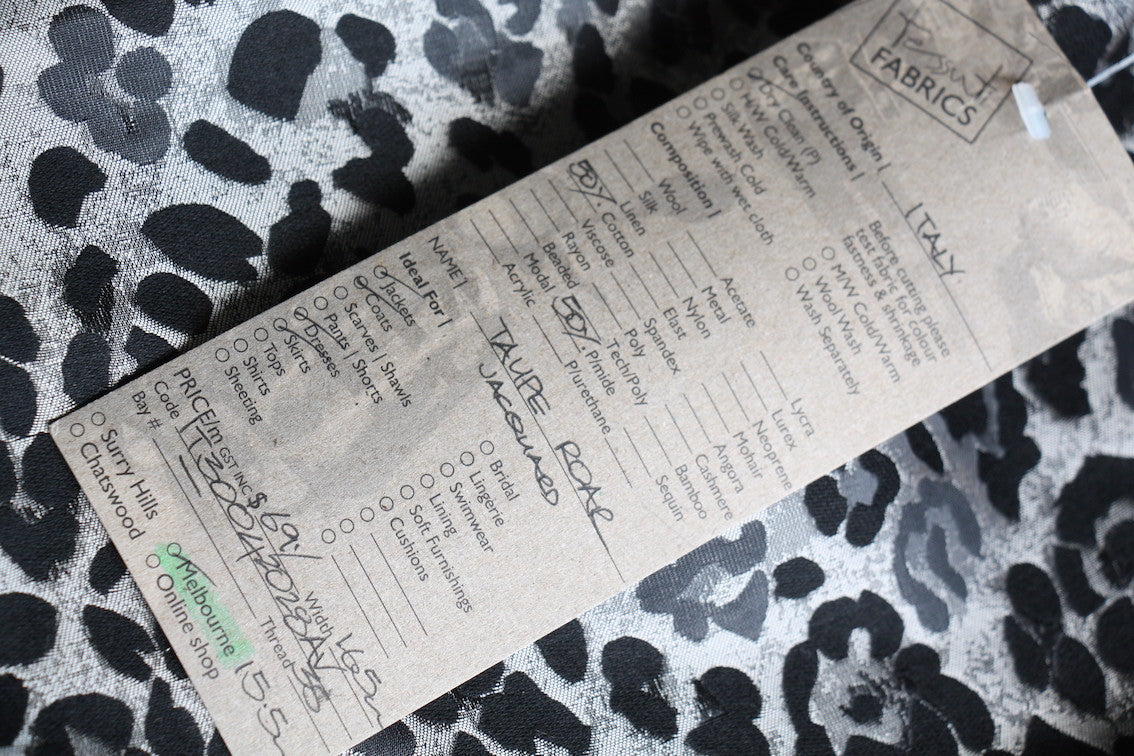 Tessuti
FABRICS
Country of Origin | ITALY
Care Instructions |
Dry Clean (P)
H/W Cold/Warm
Silk Wash
Prewash Cold
Wipe with wet cloth
Before cutting please
test fabric for colour
fastness & shrinkage
M/W Cold/Warm
Wool Wash
Wash Separately
Composition |
Wool
Silk
Linen
50% Cotton
Viscose
Rayon
Beaded
Modal
Acrylic
Acetate
Metal
Nylon
Elast
Spandex
Poly
Tech/Poly
50% P/mide
P/urethane
Lycra
Lurex
Neoprene
Mohair
Angora
Cashmere
Bamboo
Sequin
NAME | TAUPE ROAR
JACQUARD
Ideal For |
Jackets
Coats
Scarves | Shawls
Pants | Shorts
Dresses
Skirts
Tops
Shirts
Sheeting
Bridal
Lingerie
Swimwear
Lining
Soft Furnishings
Cushions
PRICE/m GST INC $ 69./ Width 1.65m
Code
Bay #
Thread
Surry Hills
Chatswood
Melbourne 15.5m
Online shop